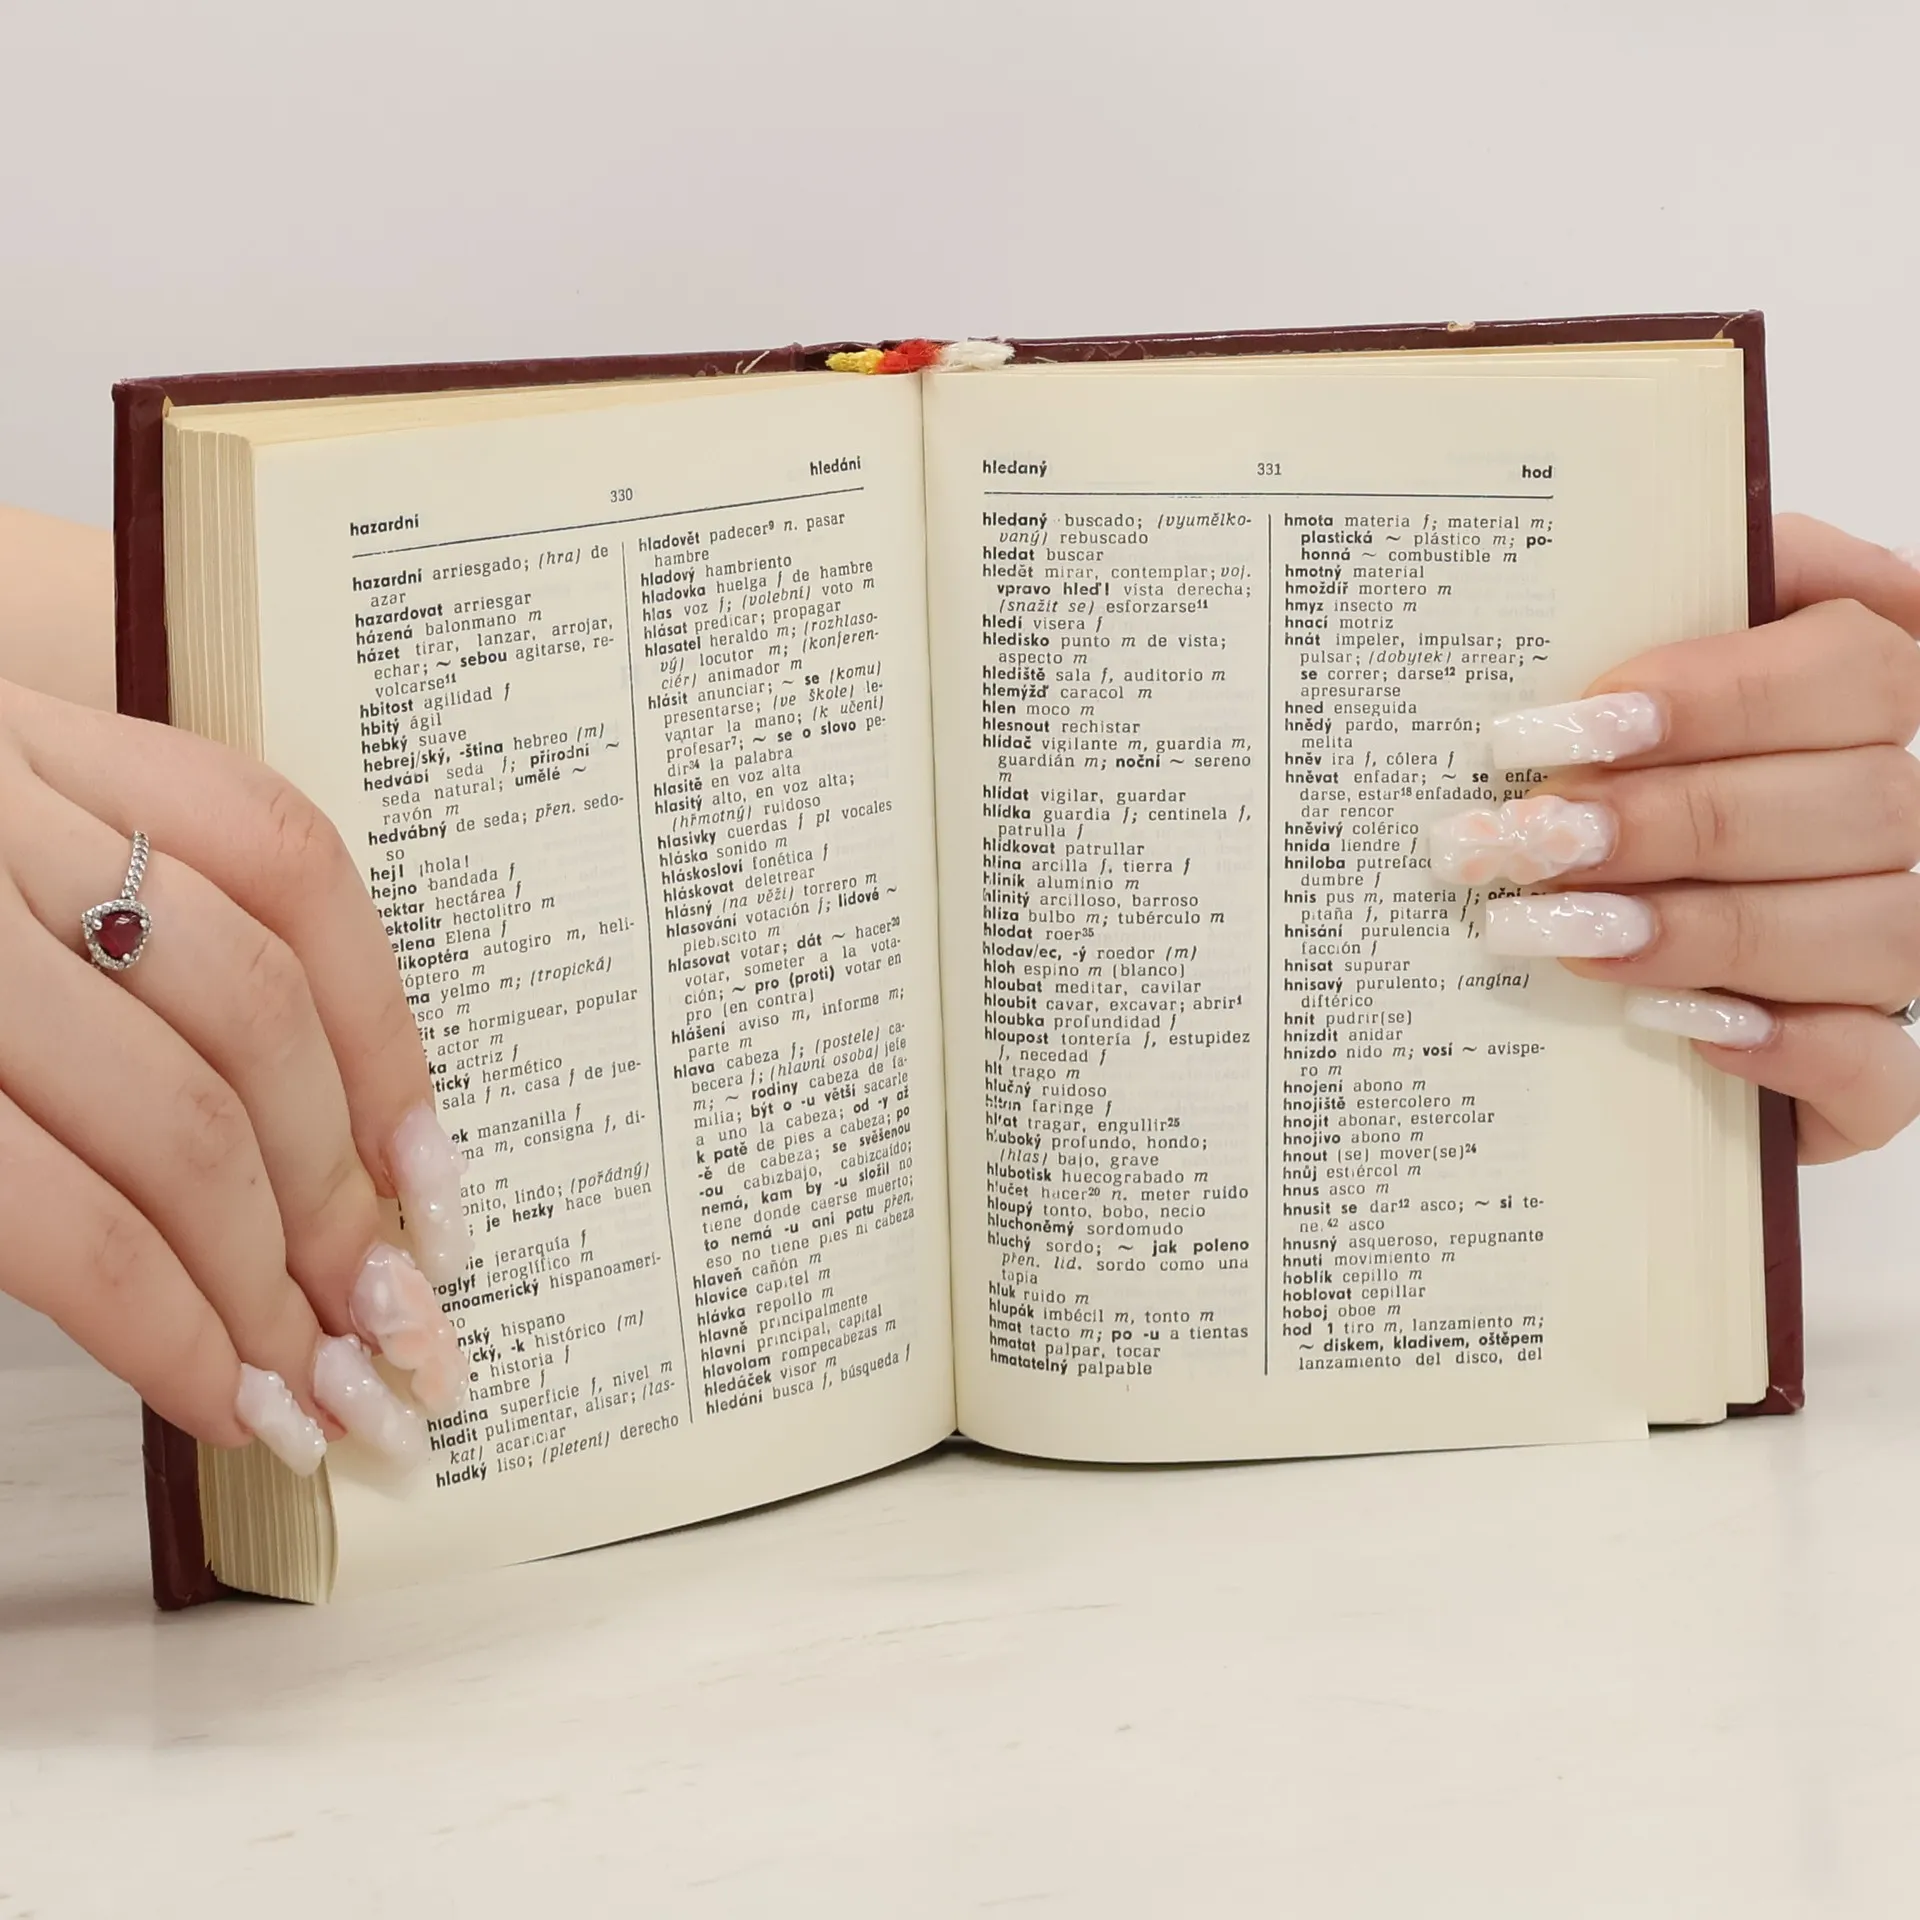 hazardní
330
hledání
hazardní arriesgado; (hra) de
azar
hazardovat arriesgar
házená balonmano m
házet tirar, lanzar, arrojar,
echar; ~ sebou agitarse, re-
volcarse¹¹
hbitost agilidad f
hbitý ágil
hebký suave
hebrej/ský, -ština hebreo (m)
hedvábí seda f; přírodní ~
seda natural; umělé ~
rayón m
hedvábný de seda; přen. sedo-
so
hej! ¡hola!
hejno bandada f
hektar hectárea f
ektolitr hectolitro m
elena Elena f
likoptéra autogiro m, heli-
óptero m
ma yelmo m; (tropická)
sco m
žit se hormiguear, popular
actor m
ka actriz f
tický hermético
sala f n. casa f de jue-
ek manzanilla f
ma m, consigna f, di-
ato m
onito, lindo; (pořádný)
; je hezky hace buen
ie jerarquía f
roglyf jeroglífico m
anoamerický hispanoameri-
no
nský hispano
cký, -k histórico (m)
e historia f
hambre f
hladina superficie f, nivel m
hladit pulimentar, alisar; (las-
kat) acariciar
hladký liso; (pletení) derecho
hladovět padecer⁹ n. pasar
hambre
hladový hambriento
hladovka huelga f de hambre
hlas voz f; (volební) voto m
hlásat predicar; propagar
hlasatel heraldo m; (rozhlaso-
vý) locutor m; (konferen-
ciér) animador m
hlásit anunciar; ~ se (komu)
presentarse; (ve škole) le-
vantar la mano; (k učení)
profesar⁷; ~ se o slovo pe-
dir³⁴ la palabra
hlasitě en voz alta
hlasitý alto, en voz alta;
(hřmotný) ruidoso
hlasivky cuerdas f pl vocales
hláska sonido m
hláskosloví fonética f
hláskovat deletrear
hlásný (na věži) torrero m
hlasování votación f; lidové ~
plebiscito m
hlasovat votar; dát ~ hacer²⁰
votar, someter a la vota-
ción; ~ pro (proti) votar en
pro (en contra)
hlášení aviso m, informe m;
parte m
hlava cabeza f; (postele) ca-
becera f; (hlavní osoba) jefe
m; ~ rodiny cabeza de fa-
milia; být o -u větší sacarle
a uno la cabeza; od -y až
k patě de pies a cabeza; po
-ě de cabeza; se svěšenou
-ou cabizbajo, cabizcaído;
nemá, kam by -u složil no
tiene donde caerse muerto;
to nemá -u ani patu přen.
eso no tiene pies ni cabeza
hlaveň cañón m
hlavice capitel m
hlávka repollo m
hlavně principalmente
hlavní principal, capital
hlavolam rompecabezas m
hledáček visor m
hledání busca f, búsqueda f
hledaný
331
hod
hledaný buscado; (vyumělko-
vaný) rebuscado
hledat buscar
hledět mirar, contemplar; voj.
vpravo hleď! vista derecha;
(snažit se) esforzarse¹¹
hledí visera f
hledisko punto m de vista;
aspecto m
hlediště sala f, auditorio m
hlemýžď caracol m
hlen moco m
hlesnout rechistar
hlídač vigilante m, guardia m,
guardián m; noční ~ sereno
m
hlídat vigilar, guardar
hlídka guardia f; centinela f,
patrulla f
hlídkovat patrullar
hlína arcilla f, tierra f
hliník aluminio m
hlinitý arcilloso, barroso
hlíza bulbo m; tubérculo m
hlodat roer³⁵
hlodav/ec, -ý roedor (m)
hloh espino m (blanco)
hloubat meditar, cavilar
hloubit cavar, excavar; abrir¹
hloubka profundidad f
hloupost tontería f, estupidez
f, necedad f
hlt trago m
hlučný ruidoso
hltan faringe f
hltat tragar, engullir²⁵
hluboký profundo, hondo;
(hlas) bajo, grave
hlubotisk huecograbado m
hlučet hacer²⁰ n. meter ruido
hloupý tonto, bobo, necio
hluchoněmý sordomudo
hluchý sordo; ~ jak poleno
přen. lid. sordo como una
tapia
hluk ruido m
hlupák imbécil m, tonto m
hmat tacto m; po -u a tientas
hmatat palpar, tocar
hmatatelný palpable
hmota materia f; material m;
plastická ~ plástico m; po-
honná ~ combustible m
hmotný material
hmoždíř mortero m
hmyz insecto m
hnací motriz
hnát impeler, impulsar; pro-
pulsar; (dobytek) arrear; ~
se correr; darse¹² prisa,
apresurarse
hned enseguida
hnědý pardo, marrón;
melita
hněv ira f, cólera f
hněvat enfadar; ~ se enfa-
darse, estar¹⁸ enfadado, gu
dar rencor
hněvivý colérico
hnida liendre f
hniloba putrefac
dumbre f
hnis pus m, materia f; oční ~
pitaña f, pitarra f
hnisání purulencia f,
facción f
hnisat supurar
hnisavý purulento; (angína)
diftérico
hnít pudrir(se)
hnízdit anidar
hnízdo nido m; vosí ~ avispe-
ro m
hnojení abono m
hnojiště estercolero m
hnojit abonar, estercolar
hnojivo abono m
hnout (se) mover(se)²⁴
hnůj estiércol m
hnus asco m
hnusit se dar¹² asco; ~ si te-
ner⁴² asco
hnusný asqueroso, repugnante
hnutí movimiento m
hoblík cepillo m
hoblovat cepillar
hoboj oboe m
hod 1 tiro m, lanzamiento m;
~ diskem, kladivem, oštěpem
lanzamiento del disco, del